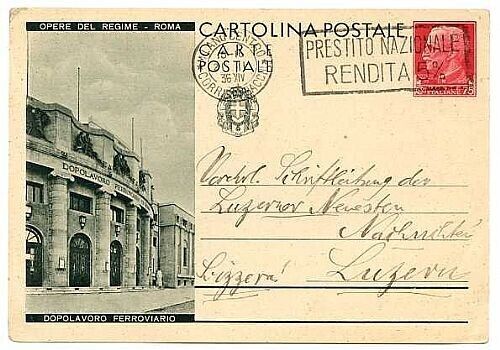 OPERE DEL REGIME - ROMA
CARTOLINA POSTALE
CARTE
POSTALE
MILANO CENTRO
36 XIV
CORRISP. PACCHI
PRESTITO NAZIONALE
RENDITA 5%
75
DOPOLAVORO FERROVIARIO
Schriftleitung der
Luzerner Neuesten
Nachrichten
Luzern
Svizzera
DOPOLAVORO FERROVIARIO